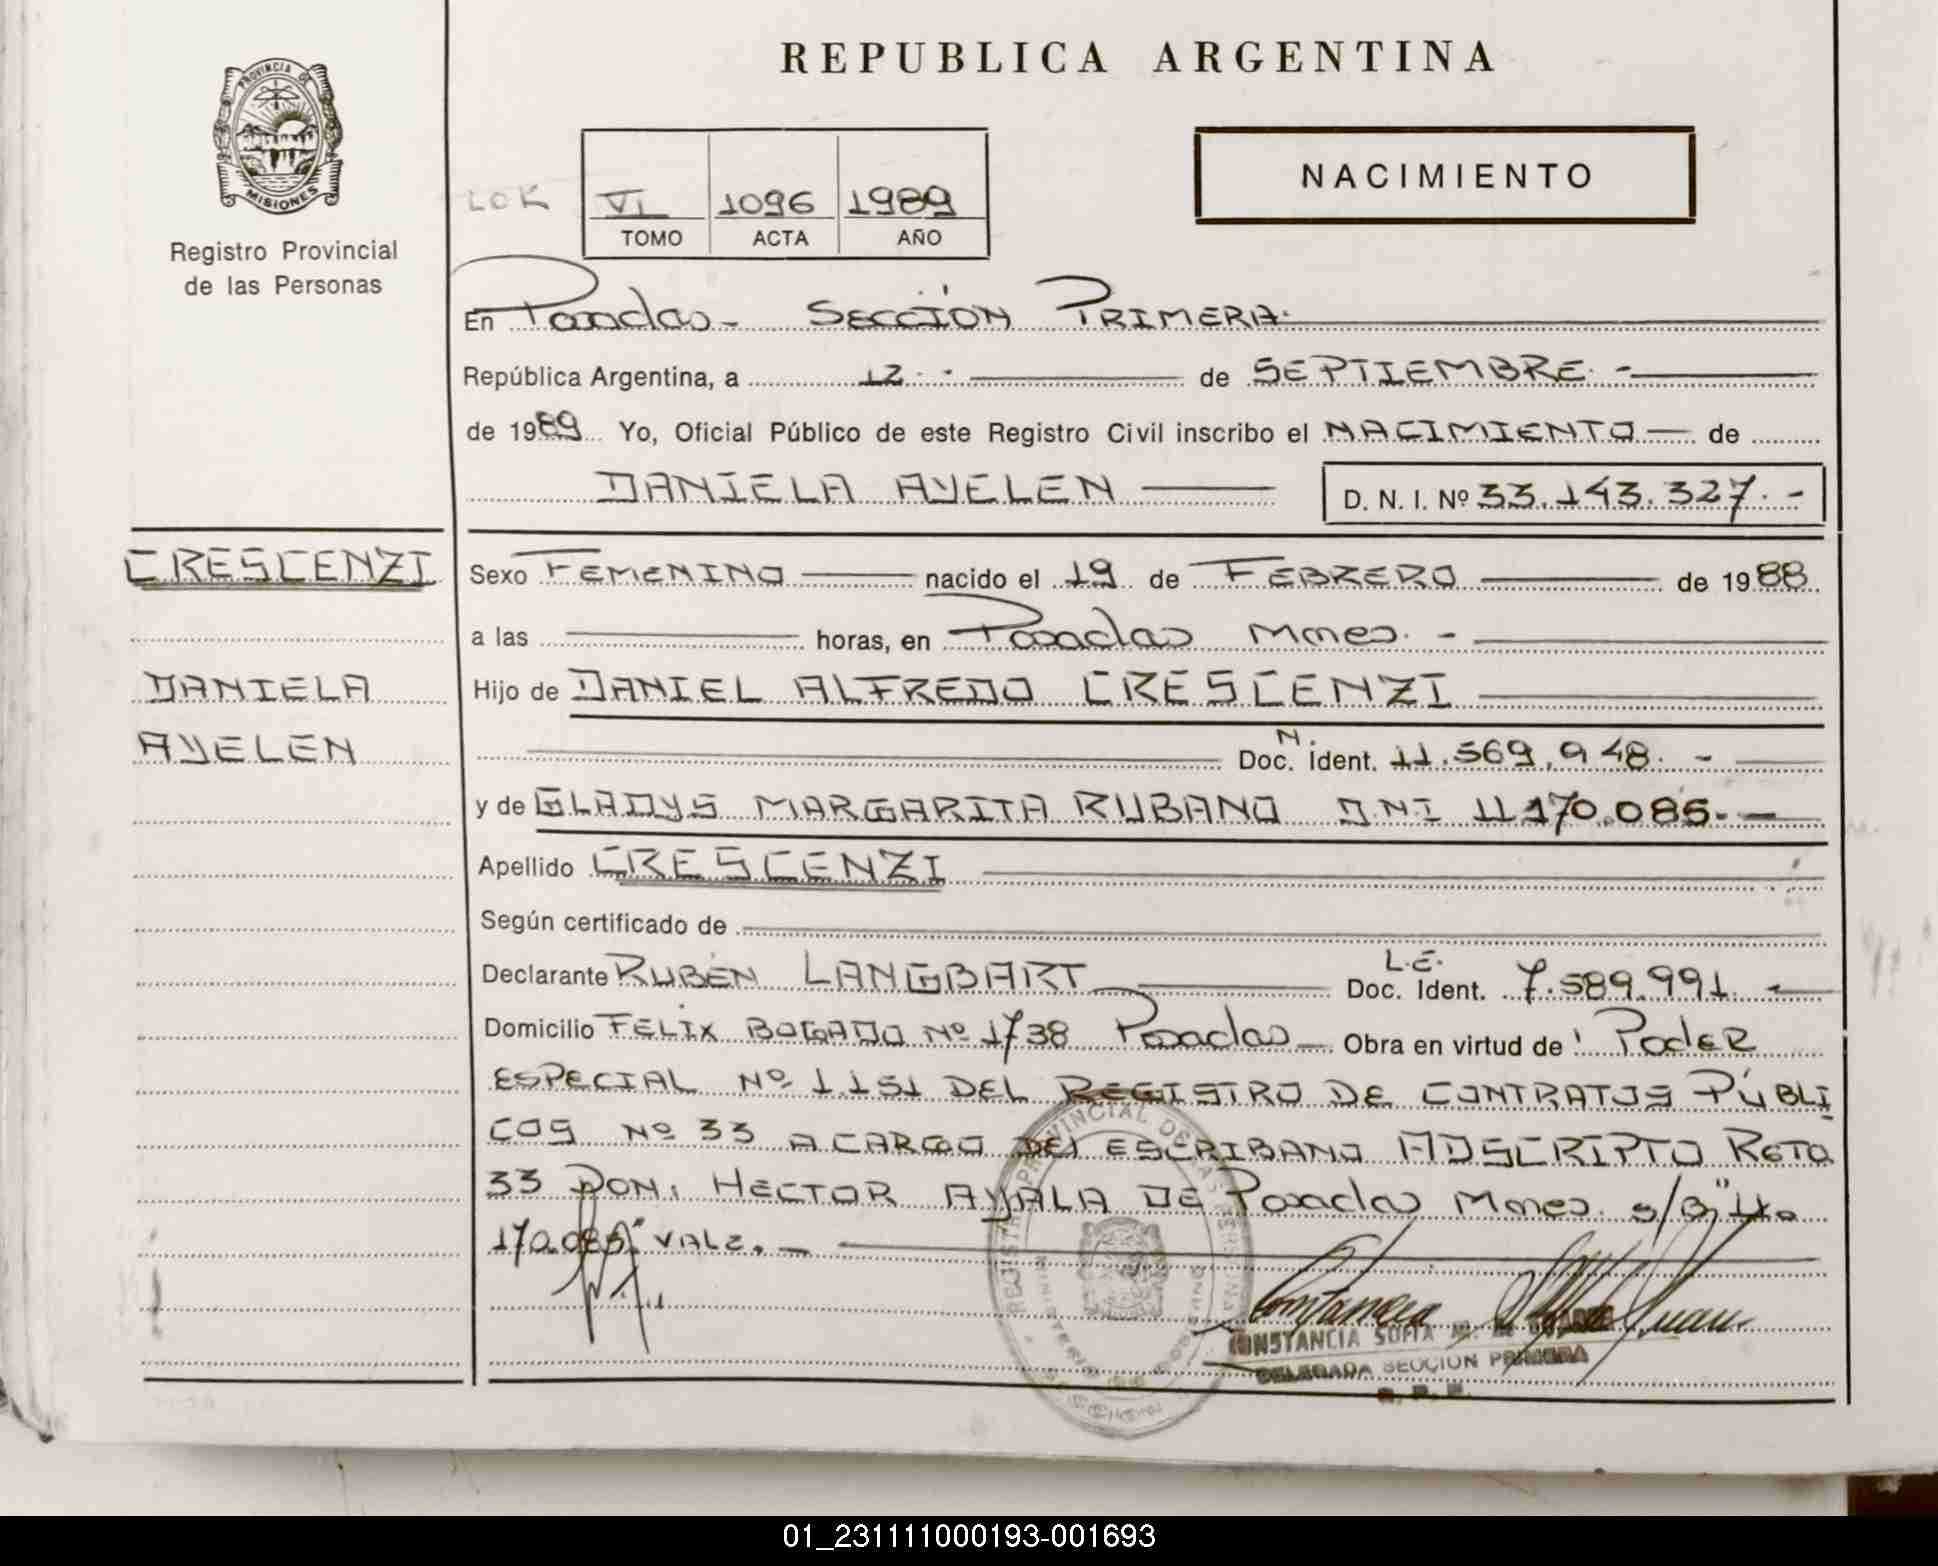 REPUBLICA ARGENTINA
PROVINCIA DE
MISIONES
Registro Provincial
de las Personas
NACIMIENTO
LOK
VI 1096 1989
TOMO ACTA AÑO
En Posadas - SECCIÓN PRIMERA.
República Argentina, a 12 - de SEPTIEMBRE. -
de 1989 Yo, Oficial Público de este Registro Civil inscribo el NACIMIENTO — de
DANIELA AYELEN — D. N. I. Nº 33.143.327. -
CRESCENZI
DANIELA
AYELEN
Sexo FEMENINO — nacido el 19 de FEBRERO — de 1988
a las — horas, en Posadas Mnes. -
Hijo de DANIEL ALFREDO CRESCENZI
N.
Doc. ident. 11.569.948. -
y de GLADYS MARGARITA RUBANO D.N.I 11.170.085. -
Apellido CRESCENZI
Según certificado de
Declarante RUBÉN LANGBART L.E. Doc. Ident. 7.589.991. -
Domicilio FELIX BOGADO Nº 1738 Posadas - Obra en virtud de: PODER
ESPECIAL Nº 1.151 DEL REGISTRO DE CONTRATOS PÚBLI
COS Nº 33 A CARGO DEL ESCRIBANO ADSCRIPTO RGTO
33 DON: HECTOR AYALA DE Posadas Mnes. s/B "11.
170.085" VALE. -
REGISTRO PROVINCIAL DE LAS PERSONAS
MINISTERIO DE GOBIERNO
MISIONES
CONSTANCIA SOFIA M. DE
DELEGADA SECCION PRIMERA
R. P. P.
01_231111000193-001693